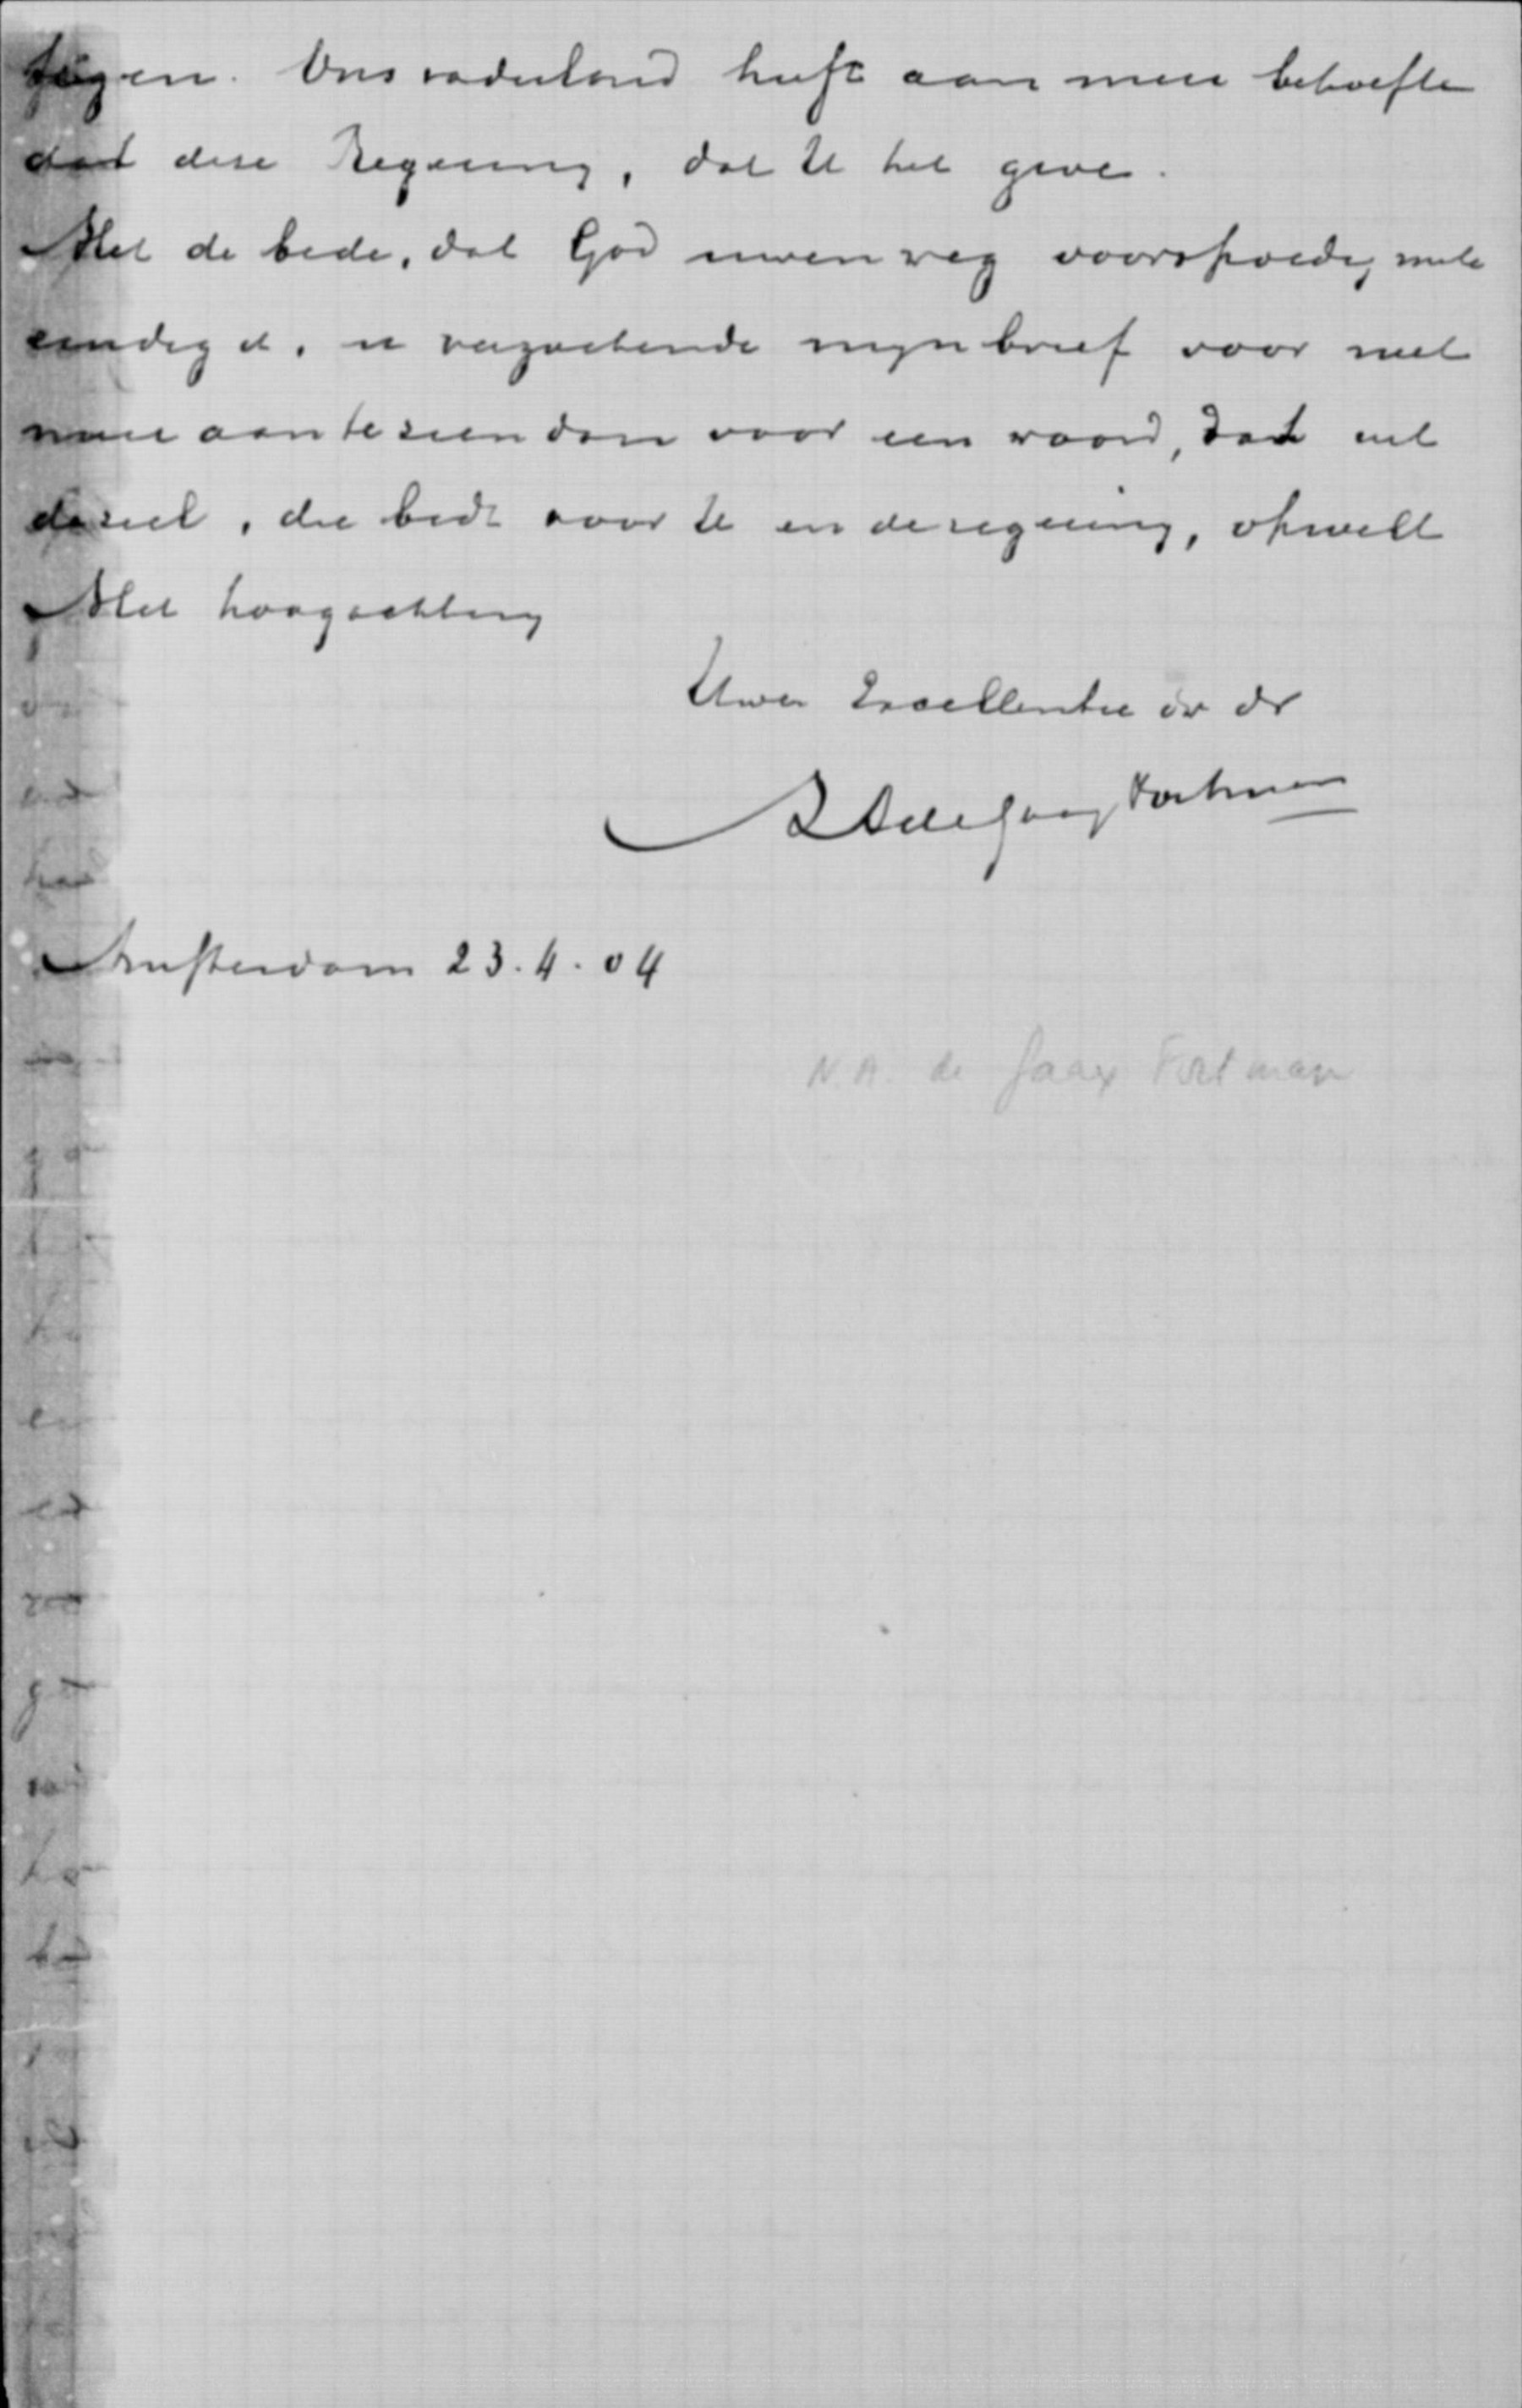 en. Ons vaderland heeft aan meer behoefte
dat deze Regeering, dat U het geve.
Met de bede, dat God uwen weg voorspoedig make
eindig ik, u verzoekende mijn brief voor niet
meer aan te zien dan voor een woord, dat uit
de ziel, die bidt voor U en de regeering, opwelt
Met hoogachting
Uwer Excellentie dw dr
NAdeGaay Fortman
Amsterdam 23.4.04
N.A. de Gaay Fortman